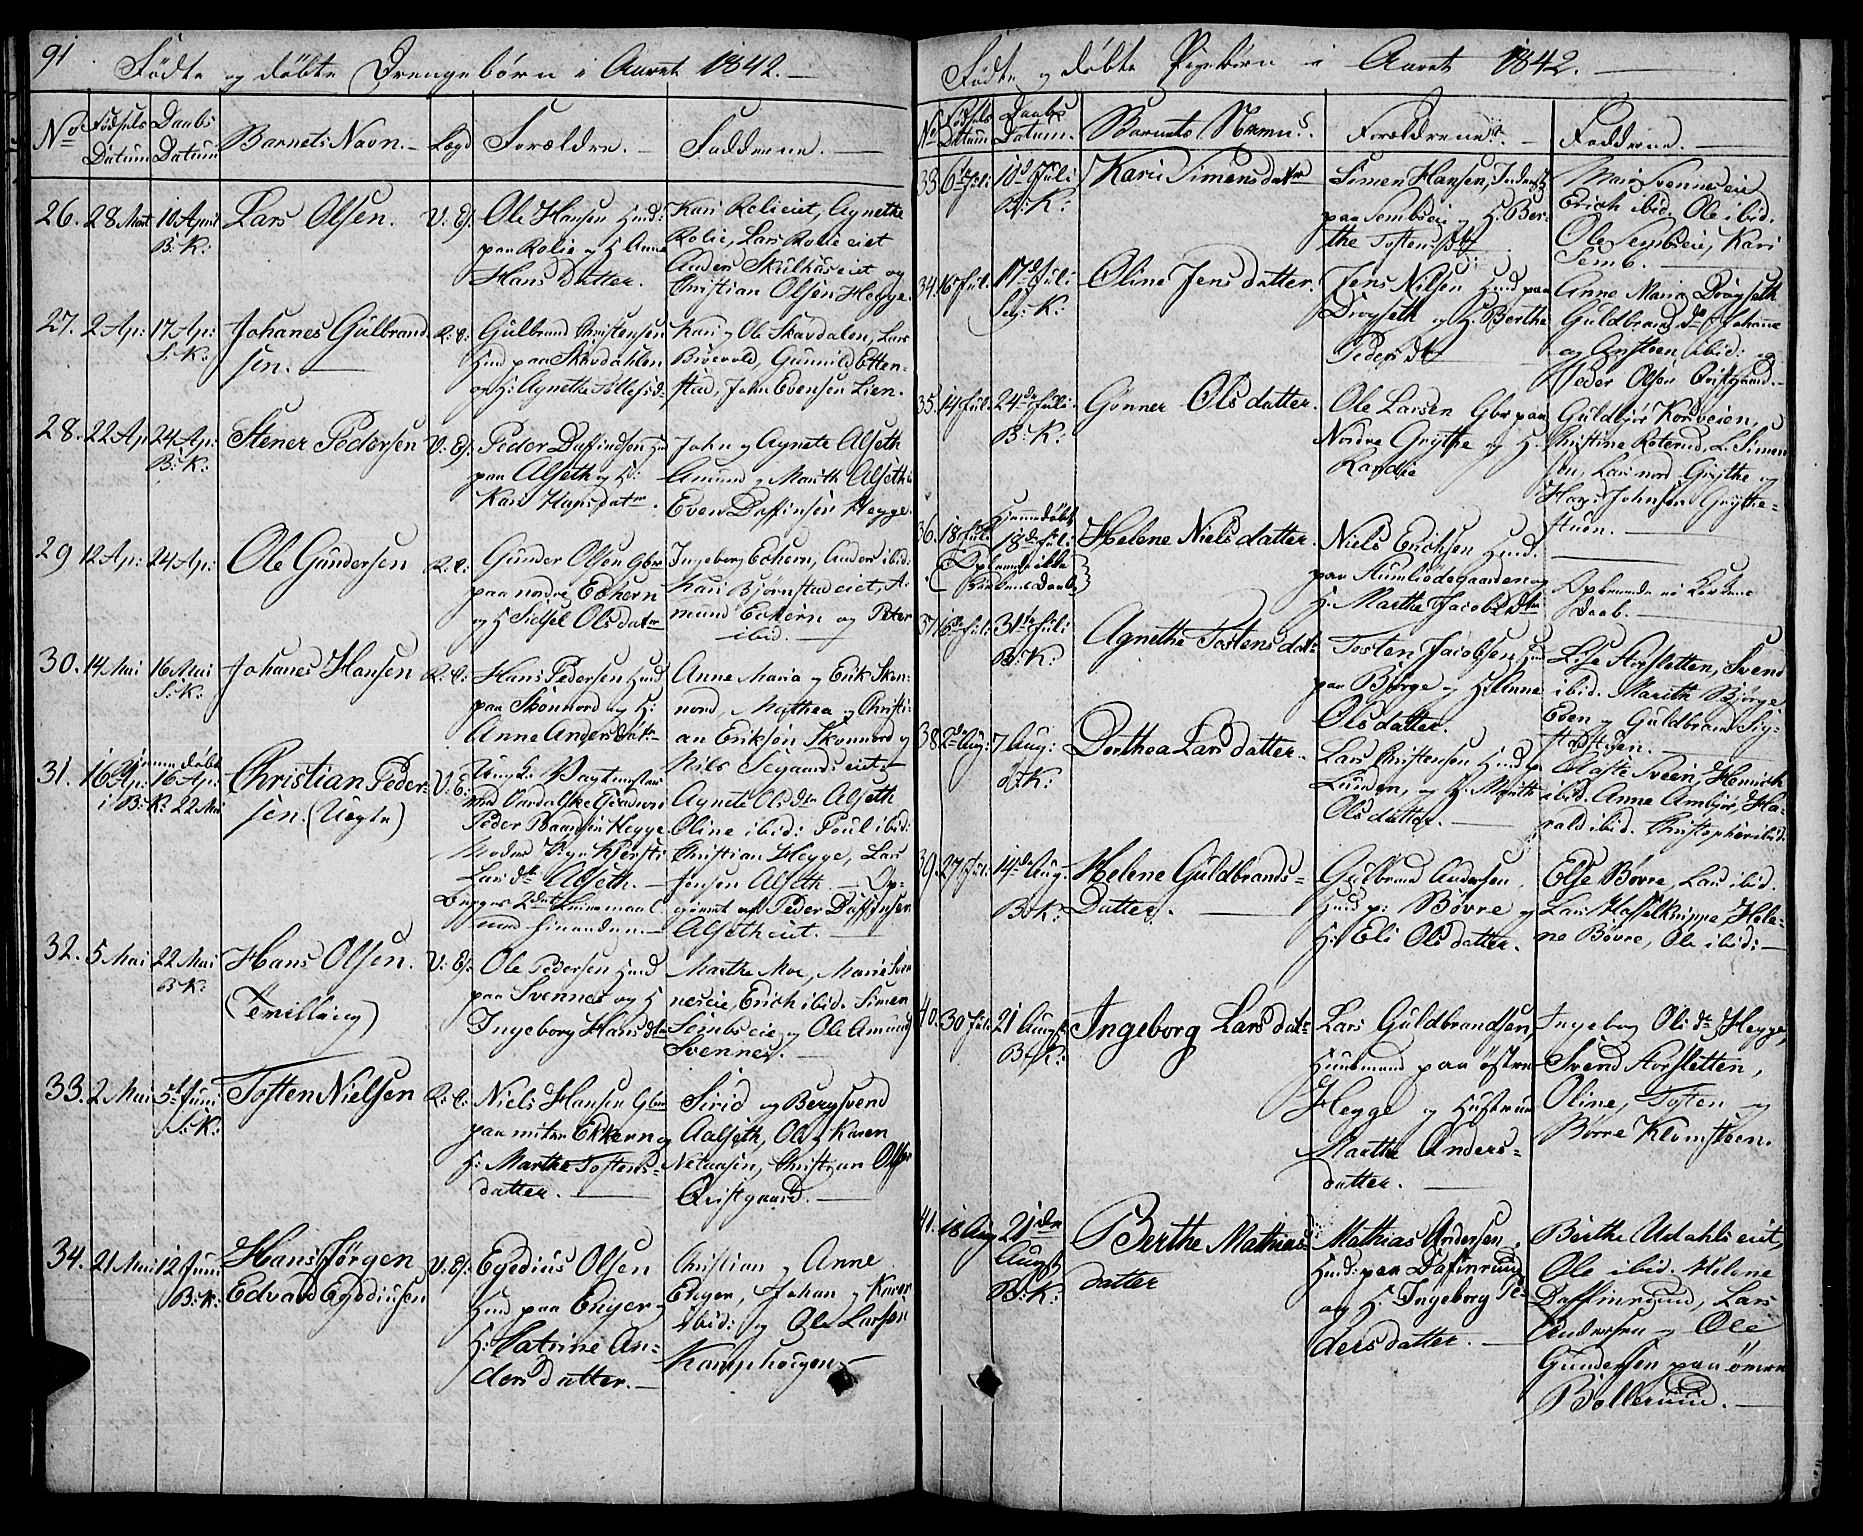 91
Födte og döbte Drengebörn i Aaret 1842.
No Fødsels Datum Daabs Datum Barnets Navn. Lægd Forældre. Fadderne.
26. 28 Mart 10 April B: K: Lars Olsen. V: Es:
Ole Hansen Huusd:
paa Rolie og H Anne
Hans Datter.
Kari Rolieiet, Agnethe
Rolie, Lars Rolieeiet
Anders Skulhuseiet og
Christian Olsen Hegge.
27. 2 Ap: 17 Ap: S: K: Johanes Gulbrand
sen.
Gulbrand Christensen
Husd paa Skavdahlen
og H: Agnethe Tollefsd:
Kari og Ole Skavdalen, Lars
Bröevold, Gunnild Etten-
stad, John Evensen Lien.
28. 22 Ap 24 Ap: B: K: Stener Pedersen V: Es:
Peder Dafindsen
paa Alseth og H:
Kari Hansdatr.
John og Agnete Alseth
Amund og Marith Alseth
Even Daffinsen Hegge.
29 12 Ap: 24 Ap: Ole Gundersen
Gunder Olsen Gbr
paa nordre Eckern
og H Sidsel Olsdatr
Ingeborg Eckern, Anders ibid:
Kari Bjørnstadeiet, A-
mund Eckern og Peter
ibid.
30. 14 Mai 16 Mai S: K: Johanes Hansen
Hans Pedersen Husd
paa Skonnord og H:
Anne Andersdatr
Anne Maria og Erik Skon-
nord, Mathea og Christi-
an Eriksen Skonnord og
Nils Segaardseiet
31. 16 Ap: 16 Ap: i B: K: 22 Mai Christian Peder-
sen. (Uægte) V: E:
Peder Hegge.
Kjersti
Lars dtr Alseth.
Agnete Olsdtr Alseth
Oline ibid: Poul ibid:
Christian Hegge, Lars
Jensen Alseth. Op-
givet af Peder Daffinsen
Alsetheiet.
32. 5 Mai 22 Mai B K: Hans Olsen. V: Es:
(Tvilling)
Ole Pedersen Husd
paa Svennes og H
Ingeborg Hans dtr
Marthe Moe, Marie Sven
neseie, Erich ibid. Simen
Sembseie og Ole Amund
Svennes.
33. 2 Mai 5te Juni S: K: Tosten Nielsen
Niels Hansen Gbr
paa mitre Ekkern og
H: Marthe Tostens-
datter.
Sirid og Bergsvend
Aalseth, Ole og Karen
Christian Olsen
Qvistgaard.
34. 21 Mai 12 Juni B: K: Hans Jörgen
Edvard Egediusen V: Es:
Egedius Olsen
Husd paa Enger og
H: Catrine An-
ders datter.
Christian og Anne
Enger, Johan og Karen
Ibid: og Ole Larsen
Kamphougen
Födte og döbte Pigebörn i Aaret 1842.
No Fødsels Datum Daabs Datum. Barnets Navn. Forældrene. Fadderne.
33 6te Jul: 10de Juli B: K: Kari Simensdatter
Simen Hansen, Inderst
paa Sembseie og H Ber-
the Tostensdtr
Mari Svenneseie
Erich ibid, Ole ibid.
Ole Sembseie, Kari
Semb.
34. 16 Jul: 17de Juli K: Oline Jensdatter.
Jens Nilsen Husd paa
Drogseth og H Berthe
Peders dtr
Anne Maria Drogseth
Guldbrand do Johanne
og Ansteen ibid: og
Peder Olsen Qvistgaard.
35. 14 Jul: 24de Juli. B: K: Gonner Olsdatter.
Ole Larsen Gbr paa
Nordre Grythe og H.
Randie
Guldbjör Kordveien,
Christine Koterud, L. Simen
sen, Lars nord Grythe og
Hans Johnsen Grythe-
stuen.
36. 18 Jul: Hjemmedøbt 18de Juli Helene Nielsdatter.
Niels Erichsen Husd.
paa Stumliødegaarden og
H. Marthe Jacobsdtr
Daab.
37 16de Jul: 31te Juli B: K: Agnethe Tostensdatr
Tosten Jacobsen Husd
paa Björge og H. Anne
Olsdatter.
Lise Storsletten, Svend
ibid. Marith Björge
Even og Guldbrand Sig-
stadstuen.
38 2de Aug: 7 Aug: K: Dorthea Larsdatter.
Lars Christensen Husd p
Lunden, og H. Marith
Olsdatter.
Henrich
ibid. Anne Ambjør, Ha-
rald ibid. Christopher ibid.
39. 27 Jul: 14de Aug: B: K: Helene Guldbrands-
Datter.
Gulbrand Andersen
Husd p: Bövre og
H: Eli Olsdatter.
Else Bövre, Lars ibid.
Lars Hasselknippe, Hele-
ne Bövre, Ole ibid:
40. 30 Jul: 21 Aug: B: K: Ingeborg Larsdatr
Lars Guldbrandsen,
Huusmand paa østre
Hegge og Hustrue
Marthe Anders-
datter.
Ingeborg Olsdtr Hegge,
Svend Storsletten,
Oline, Tosten og
Börre Klomsteen.
41. 18 Aug 21de Augst B: K: Berthe Mathias
datter
Mathias Andersen
Husd: paa Dafinrud
og H. Ingeborg Pe-
dersdatter.
Berthe Udahlseiet,
Ole ibid. Helene
Daffinruud, Lars
Andersen og Ole
Gundersen paa
Bollerud.